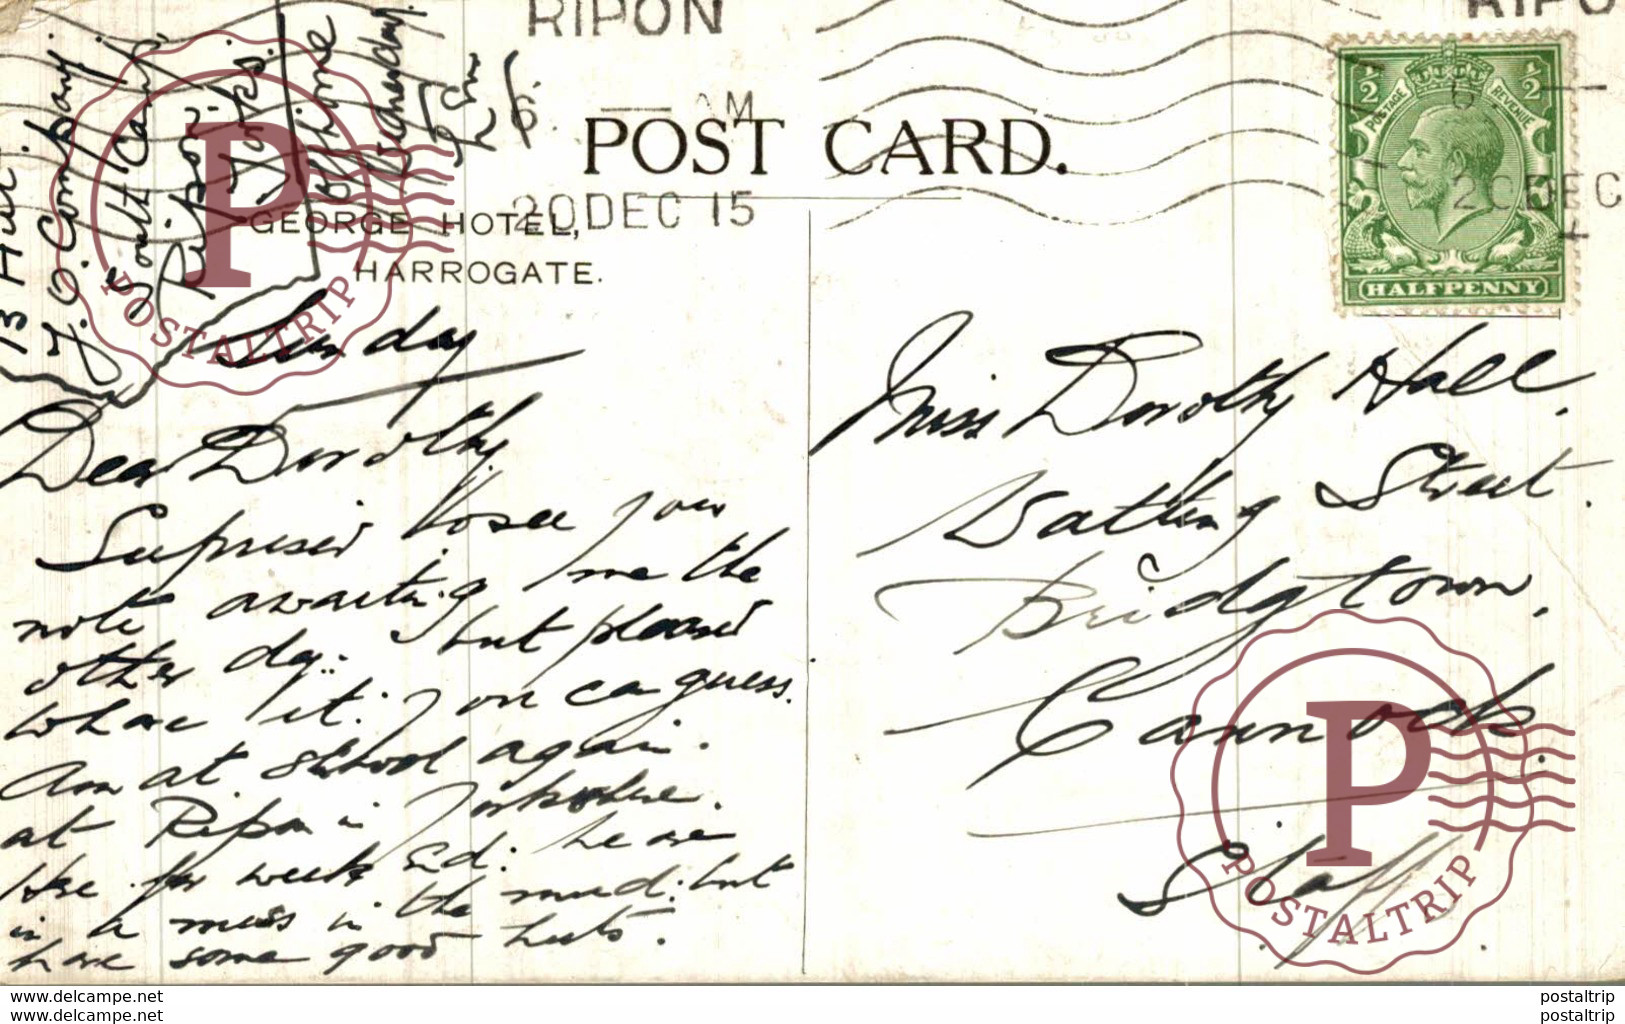 RIPON
RIPO
AM
20 DEC 15
20 DEC
POSTAGE REVENUE
½ ½
HALFPENNY
POST CARD.
GEORGE HOTEL,
HARROGATE.
13 Hut.
Y.O. Company.
South Camp,
Ripon
Yorks.
Sunday
Dear Dorothy
Surprised to see your
note awaiting me the
other day. but pleased
to have it. you can guess.
Am at school again.
at Ripon in Yorkshire.
Here for week End. We are
in a mess in the mud. but
have some good huts.
Miss Dorothy Hall.
Watling Street.
Bridgtown,
Cannock.
Staffs
P
POSTALTRIP
P
POSTALTRIP
www.delcampe.net
www.delcampe.net
postaltrip
postaltrip